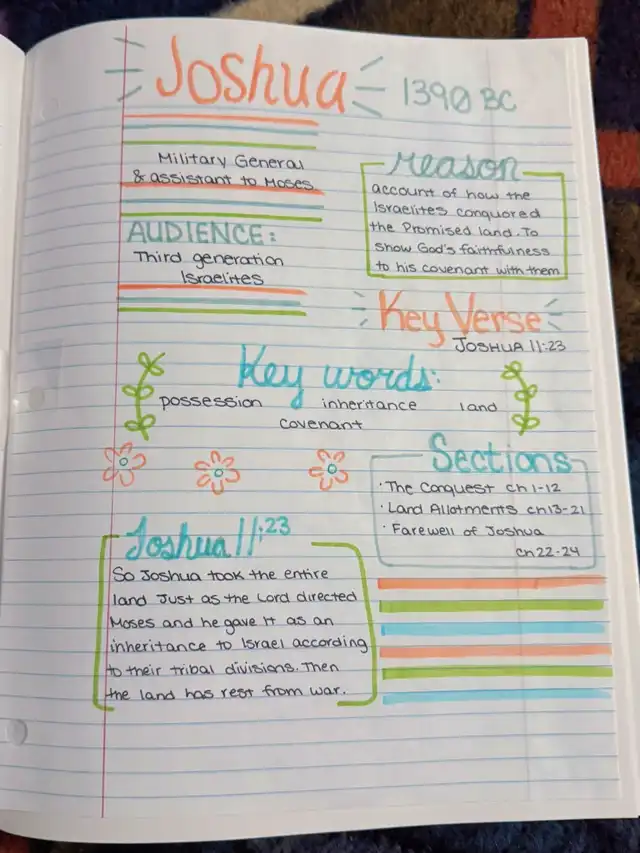 Joshua 1390 BC
Military General
& assistant to Moses
AUDIENCE:
Third generation
Israelites
reason
account of how the
Israelites conquered
the Promised land. To
show God's faithfulness
to his covenant with them
Key Verse
JOSHUA 11:23
Key words:
possession inheritance land
covenant
Sections
· The Conquest ch 1-12
· Land Allotments ch13-21
· Farewell of Joshua
ch22-24
Joshua 11:23
So Joshua took the entire
land Just as the Lord directed
Moses and he gave it as an
inheritance to Israel according
to their tribal divisions. Then
the land has rest from war.